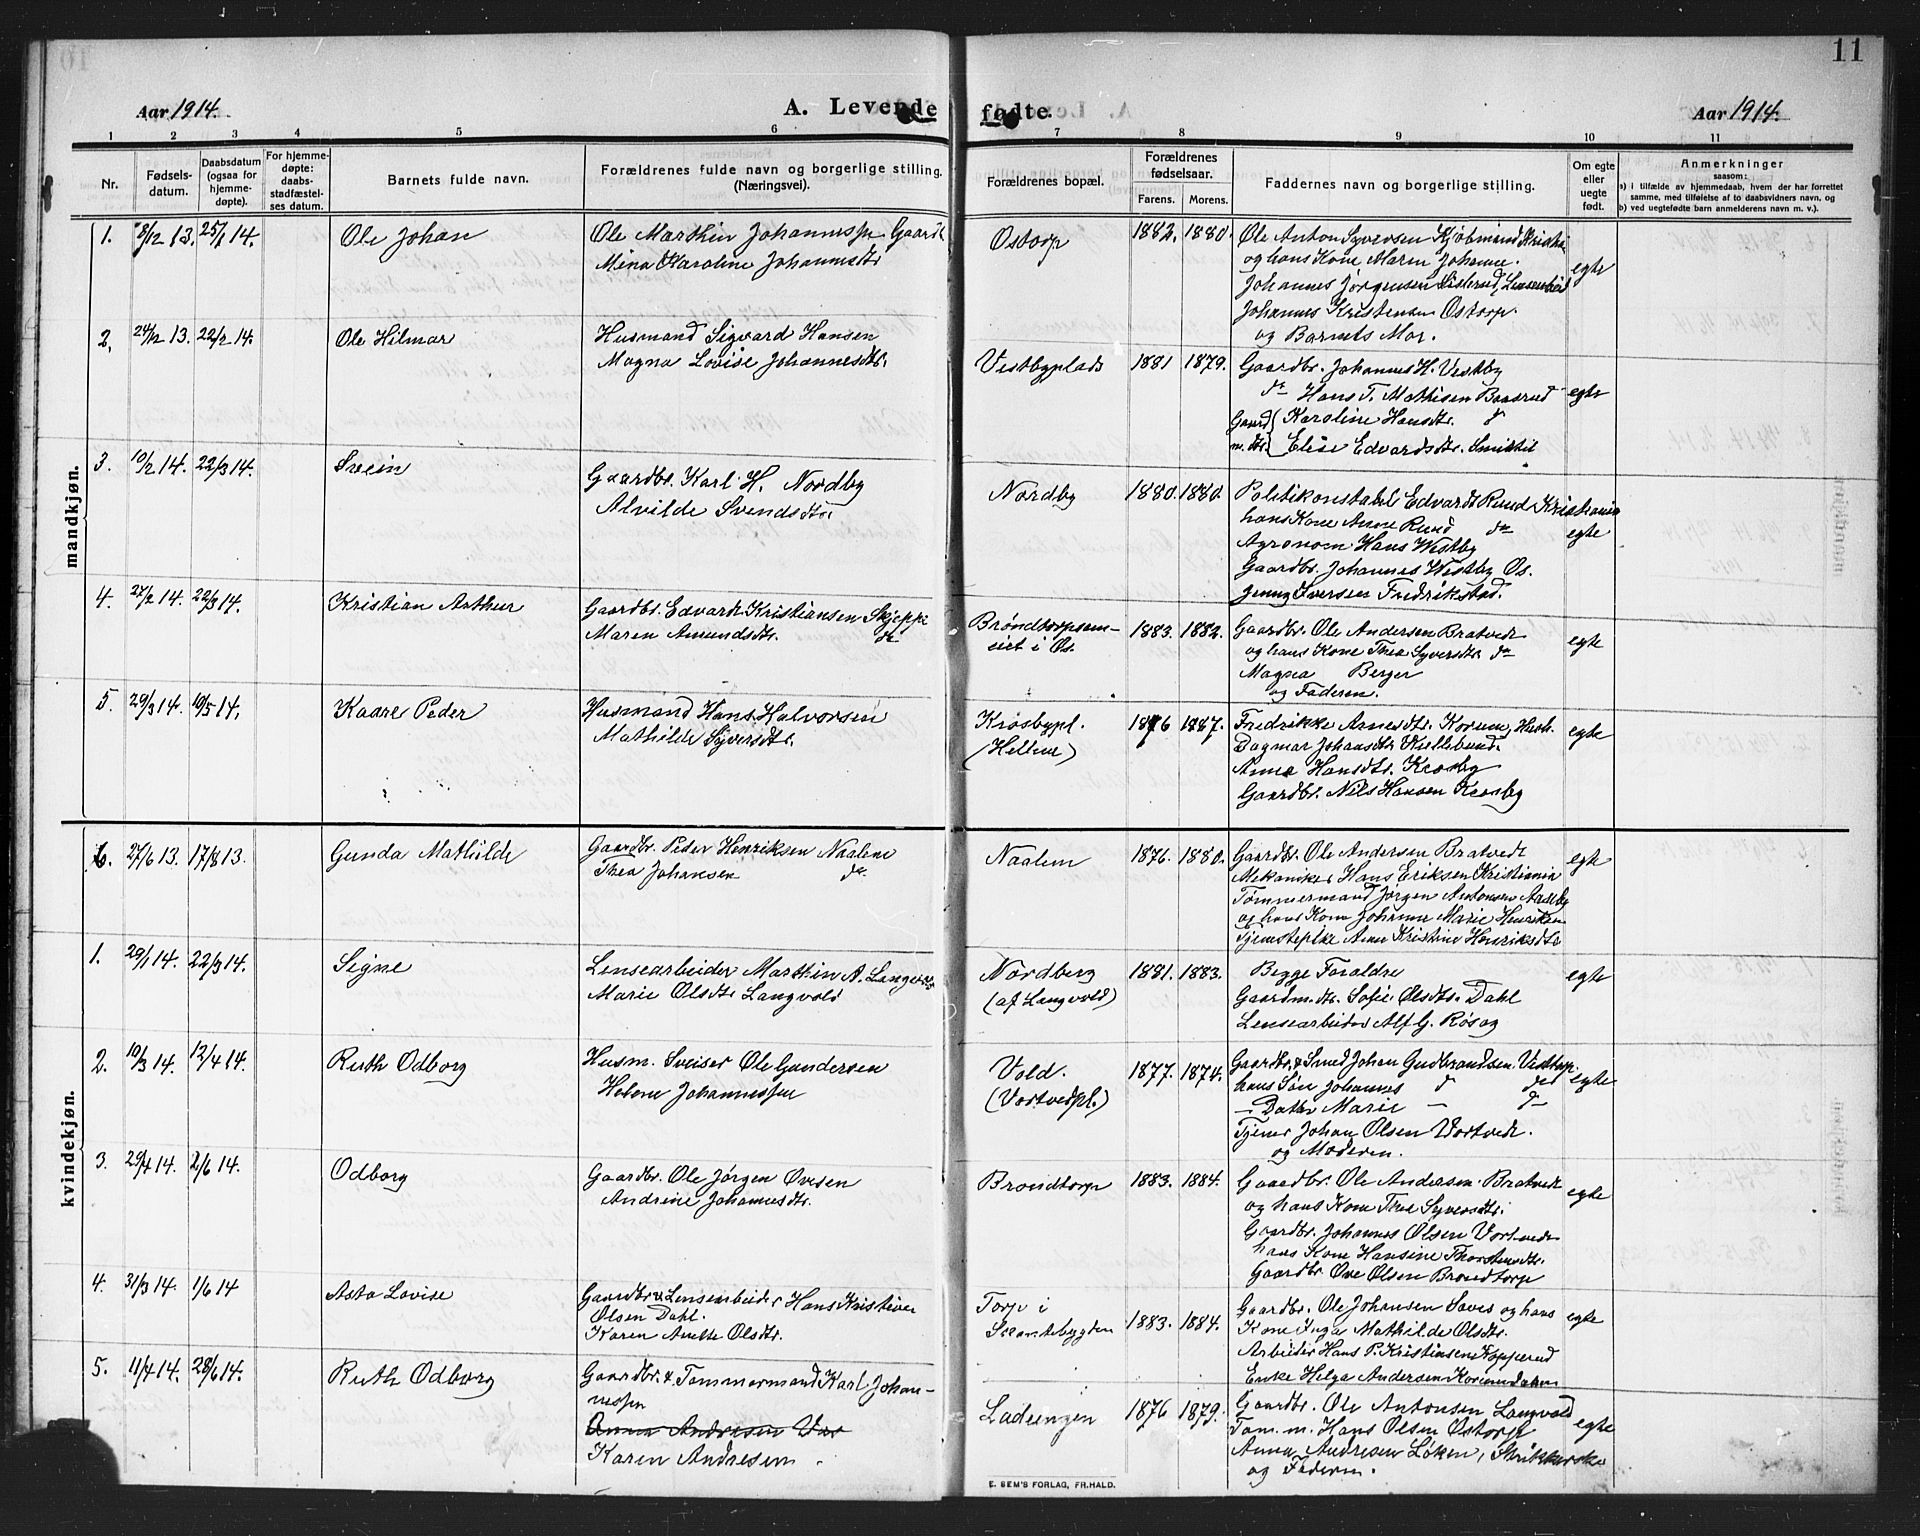 11
Aar 1914.
A. Levende fødte.
Aar 1914.
1 2 3 4 5 6 7 8 9 10 11
Nr.
Fødselsdatum.
Daabsdatum (ogsaa for hjemmedøpte).
For hjemmedøpte: daabsstadfæstelses datum.
Barnets fulde navn.
Forældrenes fulde navn og borgerlige stilling. (Næringsvei).
Forældrenes bopæl.
Forældrenes fødselsaar.
Farens. Morens.
Faddernes navn og borgerlige stilling.
Om egte eller uegte født.
Anmerkninger
saasom:
a) i tilfælde av hjemmedaab, hvem der har forrettet samme, med tilføielse af to daabsvidners navn, og
b) ved uegtefødte barn anmelderens navn m. v.).
mandkjøn.
1. 8/12 13. 25/1 14. Ole Johan
Ole Marthin Johannessen Gaardb.
Mina Karoline Johannesdtr
Ostorp 1882. 1880.
Ole Anton Syversen Kjøbmand Kristia
og hans Kone Maren Johanne.
Johannes Jørgensen
Johannes Kristensen Ostorp.
og Barnets Mor.
egte
2. 24/12 13. 22/2 14. Ole Hilmar
Husmand Sigvard Hansen
Magna Lovise Johannesdtr.
Vestbyplads 1881 1879.
Gaardbr. Johannes H. Vestby
do Hans T. Mathisen Braarud
Gaardm.dtr. Karoline Hansdtr. do
Elise Edvardsdtr.
egte
3. 10/2 14. 22/3 14. Svein
Gaardbr. Karl H. Nordby
Alvilde Svendsdtr
Nordby 1880. 1880.
Politikonstabel Edvardt Ruud Kristiania
hans Kone Anne Ruud do
Agronom Hans Westby
Gaardbr. Johannes Westby Os.
Jenny Iversen Fredrikstad.
egte
4. 27/2 14. 22/3 14. Kristian Arthur
Gaardbr. Edvardt Kristiansen Skjeppe
Maren Amundsdtr. do
Brøndtorpsameiet i Os. 1883. 1882.
Gaardbr. Ole Andersen Bratvedt
og hans Kone Thea Syversdtr do
Magna Berger
og Faderen.
egte
5. 29/3 14. 10/5 14. Kaare Peder
Husmand Hans Halvorsen
Mathilde Syversdtr.
Krosbypl. (Hellene) 1876 1887.
Fredrikke Arnesdtr. Korum, Hush.
Dagmar Johansdtr Kullebund.
Anna Hansdtr. Krosby
Gaardbr. Nils Hansen Krosby
egte
6. 27/6 13. 17/8 13. Gunda Mathilde
Gaardbr. Peder Henriksen Naalene
Thea Johansen do.
Naalem 1876. 1880.
Gaardbr. Ole Andersen Bratvedt
Mekaniker Hans Eriksen Kristiania
Tømmermand Jørgen Antonsen Aadeby
og hans Kone Johanne Marie Henriksen
Tjenestepike Anne Kristine Henriksdtr
egte
kvindekjøn.
1. 20/1 14. 22/3 14. Signe
Lensearbeider Marthin A. Langvold
Marie Olsdtr Langvold
Nordberg (af Langvold) 1881. 1883.
Begge Foraldre
Gaardm.dtr. Sofie Olsdtr. Dahl
Lensearbeider Alf G. Røsag
egte
2. 10/3 14. 12/4 14. Ruth Odborg
Husm. Sveiser Ole Gundersen
Helene Johannessen
Vold. (Vortvedpl.) 1877. 1874.
Gaardbr. & Smed Johan Gudbrandsen Vestorp.
hans Søn Johannes do do
— Datter Marie — do
Tjener Johan Olsen Vortvedt.
og Moderen.
egte
3. 29/4 14. 2/6 14. Odborg
Gaardbr. Ole Jørgen Ovesen
Andrine Johannesdtr.
Brondtorp 1883. 1884.
Gaardbr. Ole Andersen Bratvedt
og hans Kone Thea Syversdtr.
Gaardbr. Johannes Olsen Vortvedt
hans Kone Hansine Thorstensdtr.
Gaardbr. Ove Olsen Brondtorp
egte
4. 31/3 14. 1/6 14 Asta Lovise
Gaardbr & Lensearbeider Hans Kristian
Olsen Dahl.
Karen Anette Olsdtr.
Torp i Skantebygden 1883. 1884.
Gaardbr. Ole Johansen Saves og hans
Kone Inga Mathilde Olsdtr.
Arbeider Hans P. Kristiansen Kopperud
Enke Helga Andersen Korumdalen
egte
5. 11/4 14. 28/6 14. Ruth Odborg
Gaardbr. & Tømmermand Karl Johannessen
Anna Andresen
Karen Andresen.
Ladeingen 1876 1879.
Gaardbr. Ole Antonsen Langvold
Tøm.m. Hans Olsen Ostorp
Anna Andresen Løken,
og Faderen.
egte
E. SEM'S FORLAG, FR.HALD.